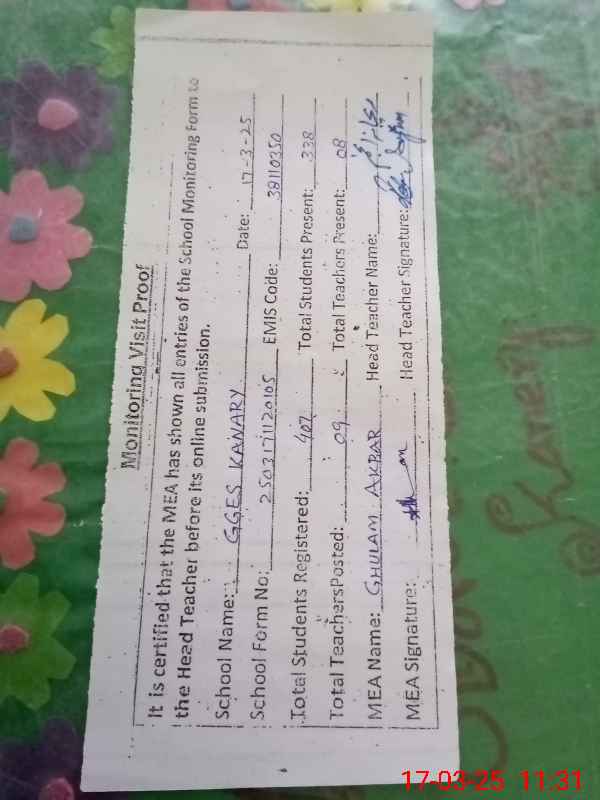 Monitoring Visit Proof
It is certified that the MEA has shown all entries of the School Monitoring Form to
the Head Teacher before its online submission.
School Name: GGES KANARY Date: 17-3-25
School Form No: 2503171120105 EMIS Code: 38110350
Total Students Registered: 407 Total Students Present: 338
Total Teachers Posted: 09 Total Teachers Present: 08
MEA Name: GHULAM AKBAR Head Teacher Name:
MEA Signature: Head Teacher Signature:
17-03-25 11:31